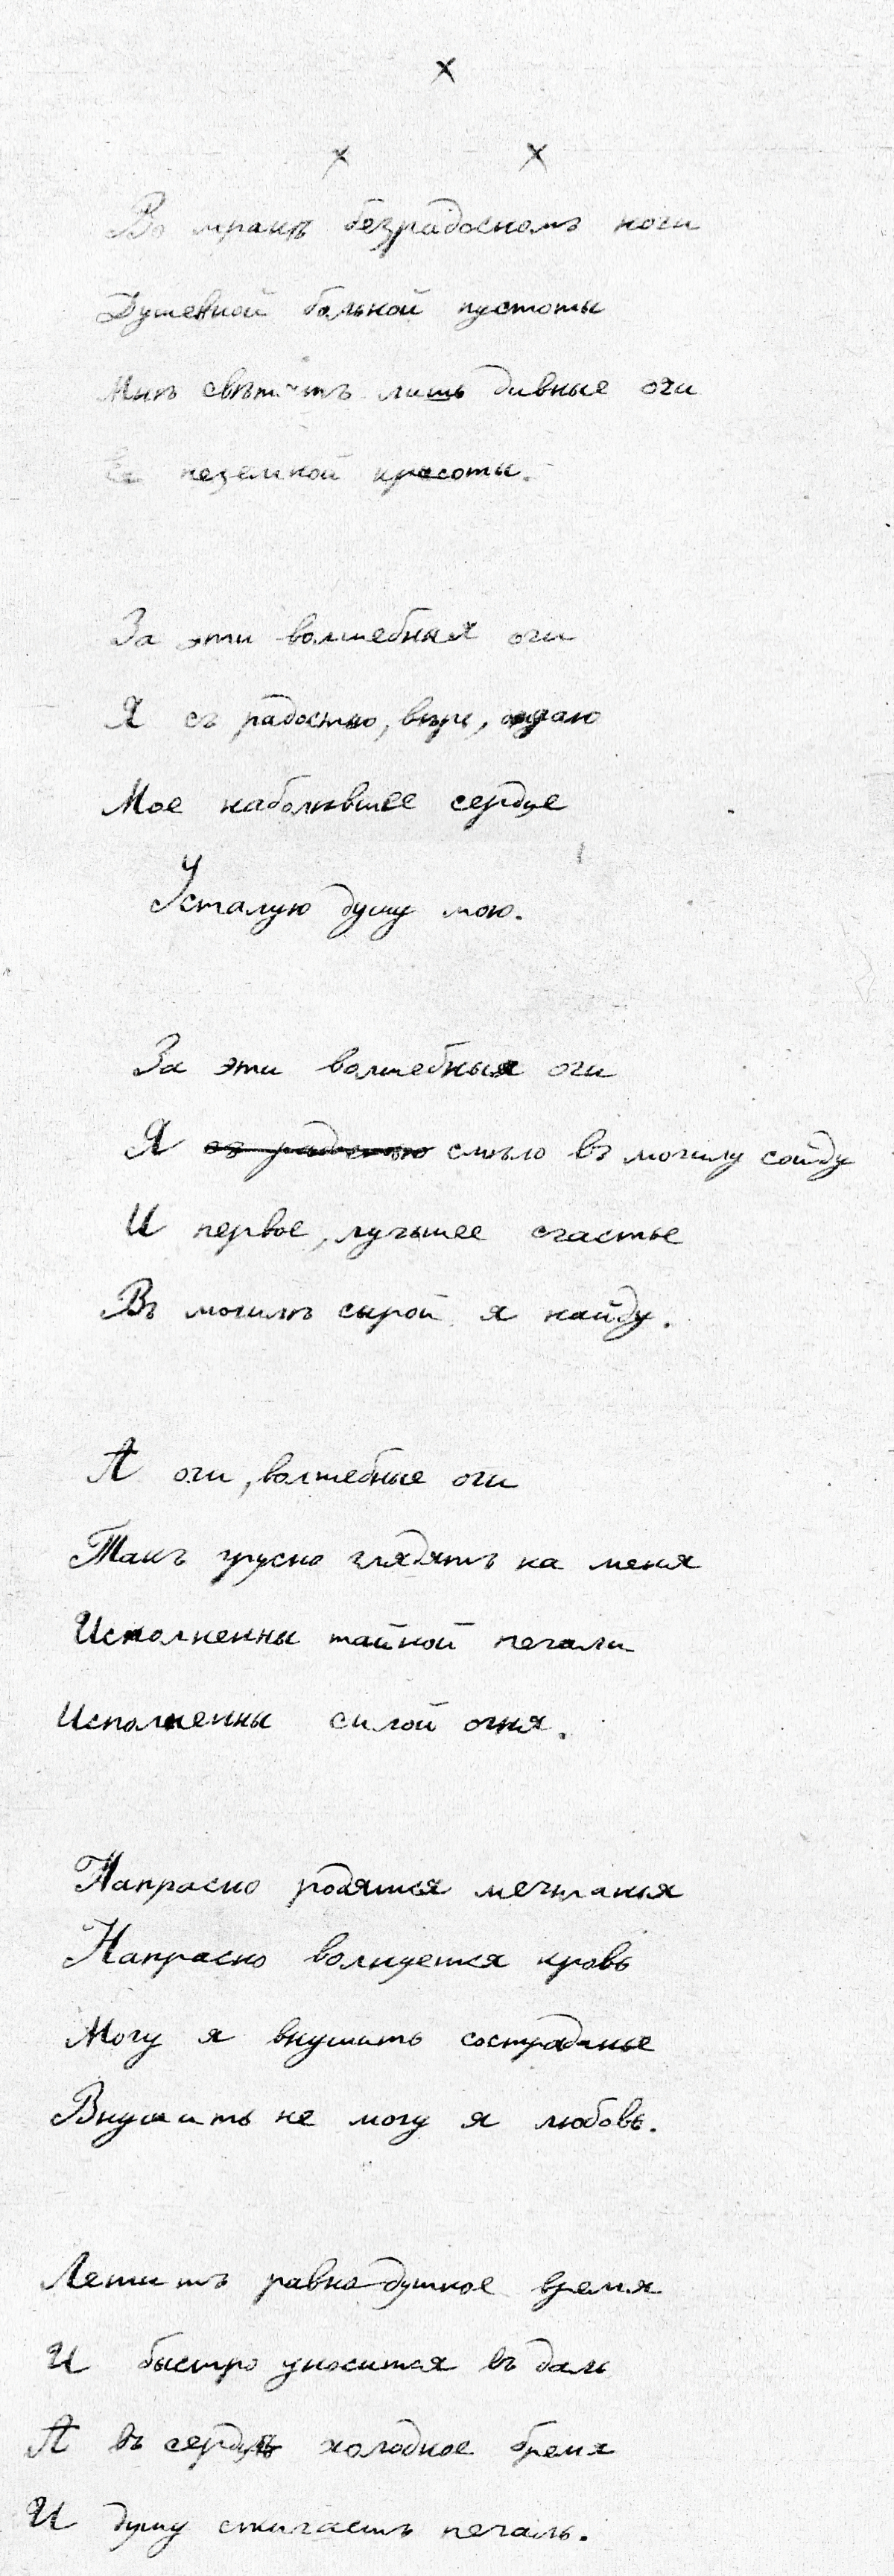 х
х х
Во мракѣ безрадосномъ ночи
Душевной больной пустоты
Мнѣ свѣтитъ лишь дивные очи
Ее неземной красоты.
За эти волшебныя очи
Я съ радостью, вѣрь, отдаю
Мое наболѣвшее сердце
Усталую душу мою.
За эти волшебныя очи
Я съ радостью смѣло въ могилу сойду
И первое, лучшее счастье
Въ могилѣ сырой я найду.
А очи, волшебные очи
Такъ грусно глядятъ на меня
Исполненны тайной печали
Исполненны силой огня.
Напрасно родятся мечтанья
Напрасно волнуется кровь
Могу я внушить состраданье
Внушить не могу я любовь.
Летитъ равнодушное время
И быстро уносится въ даль
А въ сердцѣ холодное бремя
И душу сжигаетъ печаль.